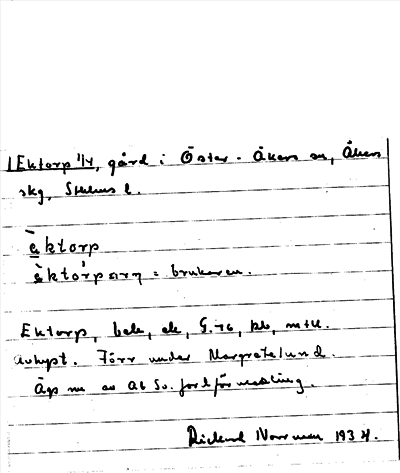 Ektorp 1/4, gård i Öster-Åkers sn, Åkers
skg, Sthlms l.
ēktorp
ektórparn = brukaren.
Ektorp, bel., G.
avhyst. Förr under Margretelund.
Äges nu av AB Sv. jordförmedling.
Rickard Norrman 1934.